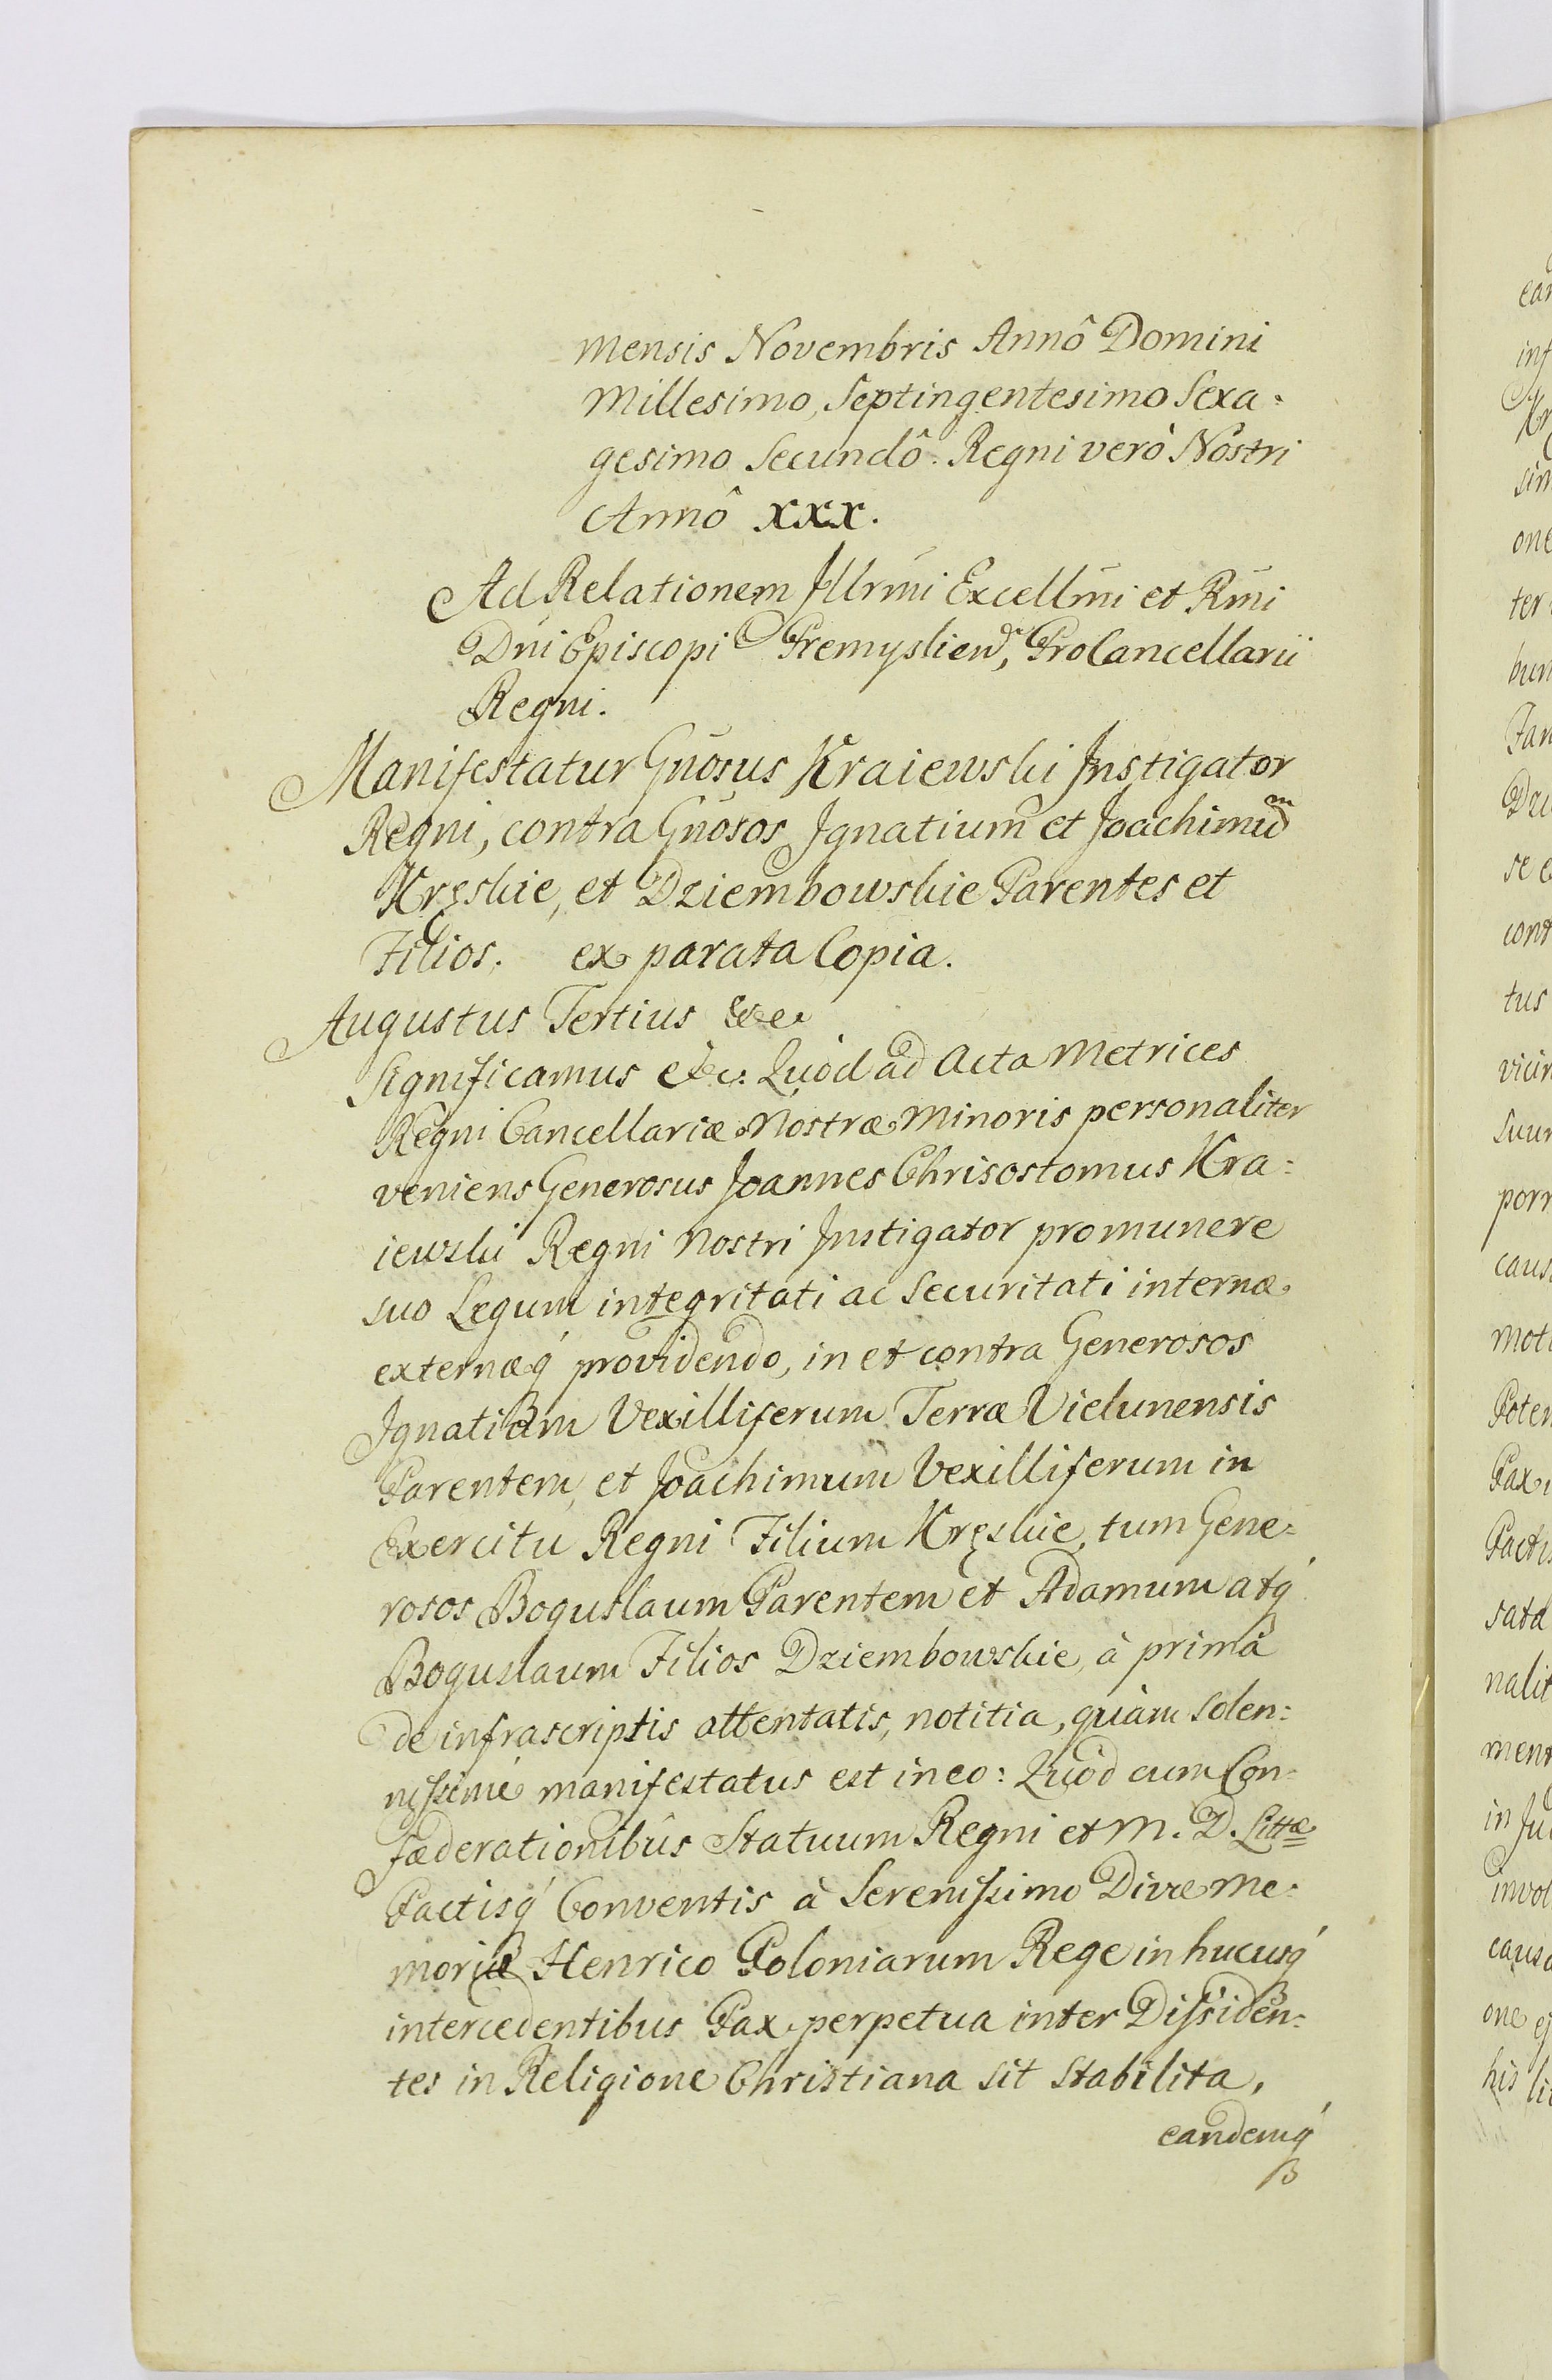 mensis Novembris Annô Domini
Millesimo, Septingentesimo Sexa=
gesimo Secundô. Regni verò Nostri
Annô XXX.
Ad Relationem Illrmi Excellmi et Rmi
Dni Episcopi Premysliens, ProCancellarii
Regni.
Manifestatur Gnosus Kraiewski Instigator
Regni, contra Gnosos Ignatium et Joachimum
Kręskie, et Dziembowskie Parentes et
Filios. ex parata Copia.
Augustus Tertius &c
Significamus &c: Quòd ad Acta Metrices
Regni Cancellariæ Nostræ Minoris personaliter
veniens Generosus Joannes Chrisostomus Kra=
iewski Regni Nostri Instigator pro munere
suo Legum integritati ac Securitati internæ
externæq́ providendo, in et contra Generosos
Ignatium Vexilliferum Terræ Vielunensis
Parentem, et Joachimum Vexilliferum in
Exercitu Regni Filium Kręskie, tum Gene=
rosos Boguslaum Parentem et Adamum atq́
Boguslaum Filios Dziembowskie, à primâ
de infrascriptis attentatis, notitia, quàm Solen=
nissimè manifestatus est in eo: Quòd cum Con=
fæderationibus Statuum Regni et M. D. Littæ
Pactisq́ Conventis à Serenissimo Divæ Me=
moriæ Henrico Poloniarum Rege in hucusq́
intercedentibus Pax perpetua inter Dissiden=
tes in Religione Christiana sit stabilita,
eandemq́